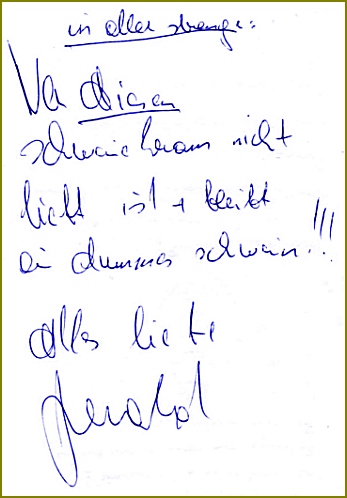 in aller strenge:
Wer diesen
schweinekram nicht
liebt ist + bleibt
ein dummes schwein!!!
alles liebe